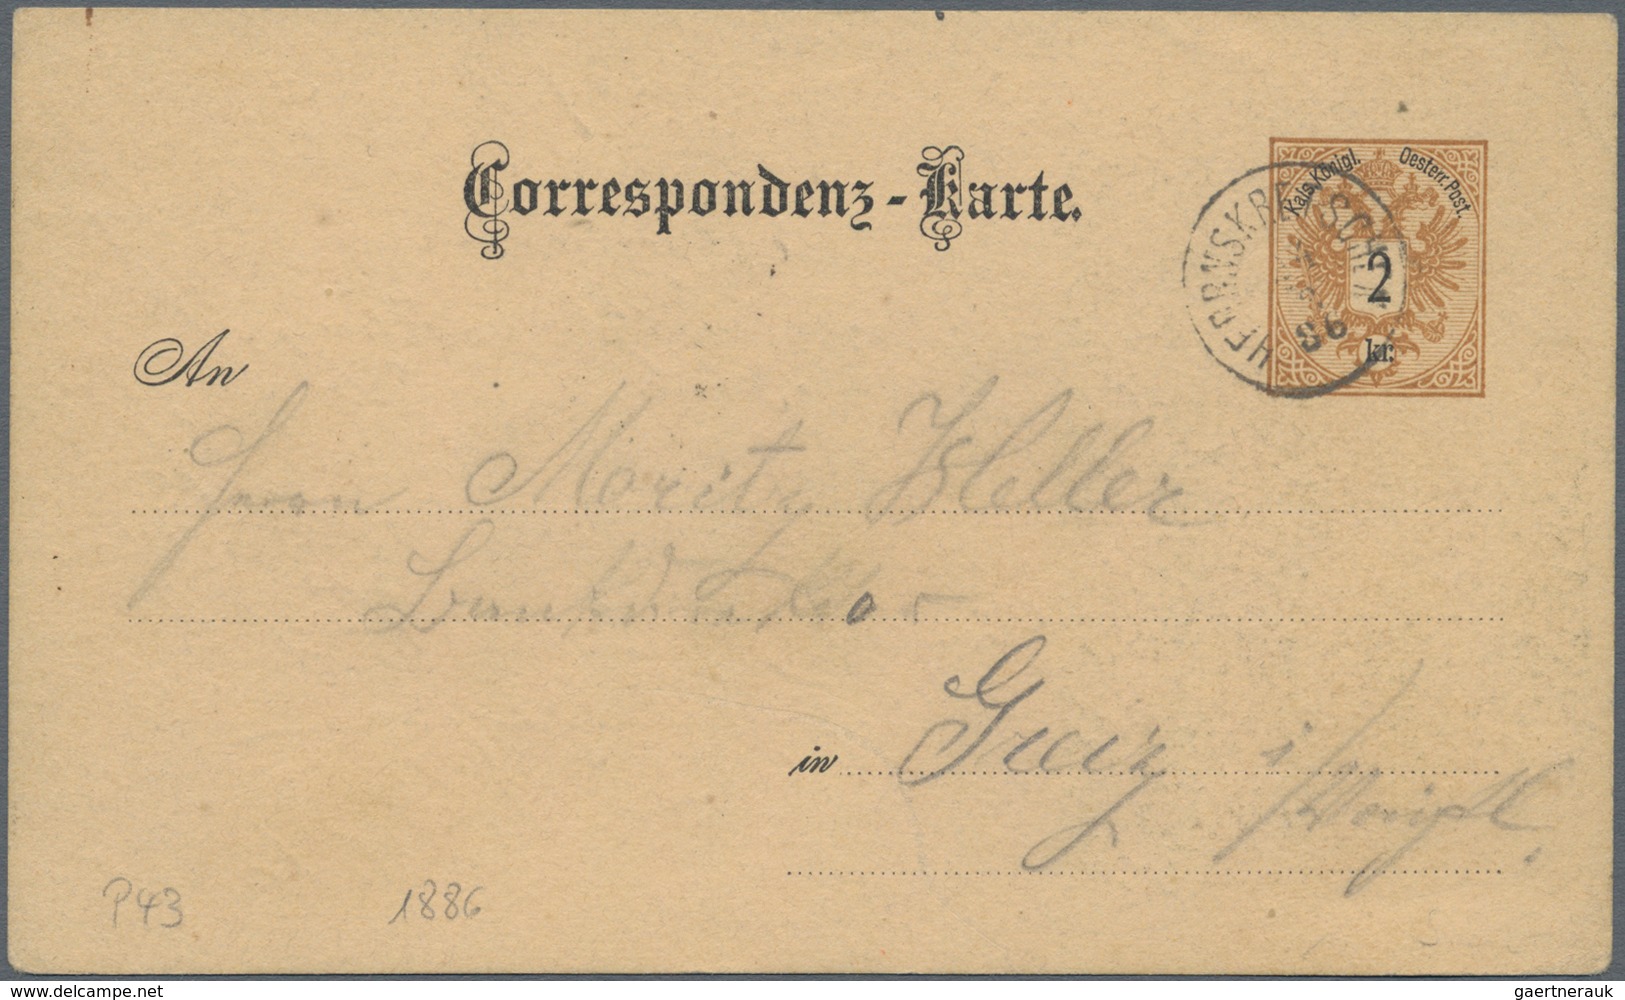 Correspondenz-Karte.
Kais. Königl. Oesterr. Post.
2
kr.
86
An
Herrn Moritz Heller
in Greiz i/Voigtl.
P43 1886
www.delcampe.net
gaertnerauk